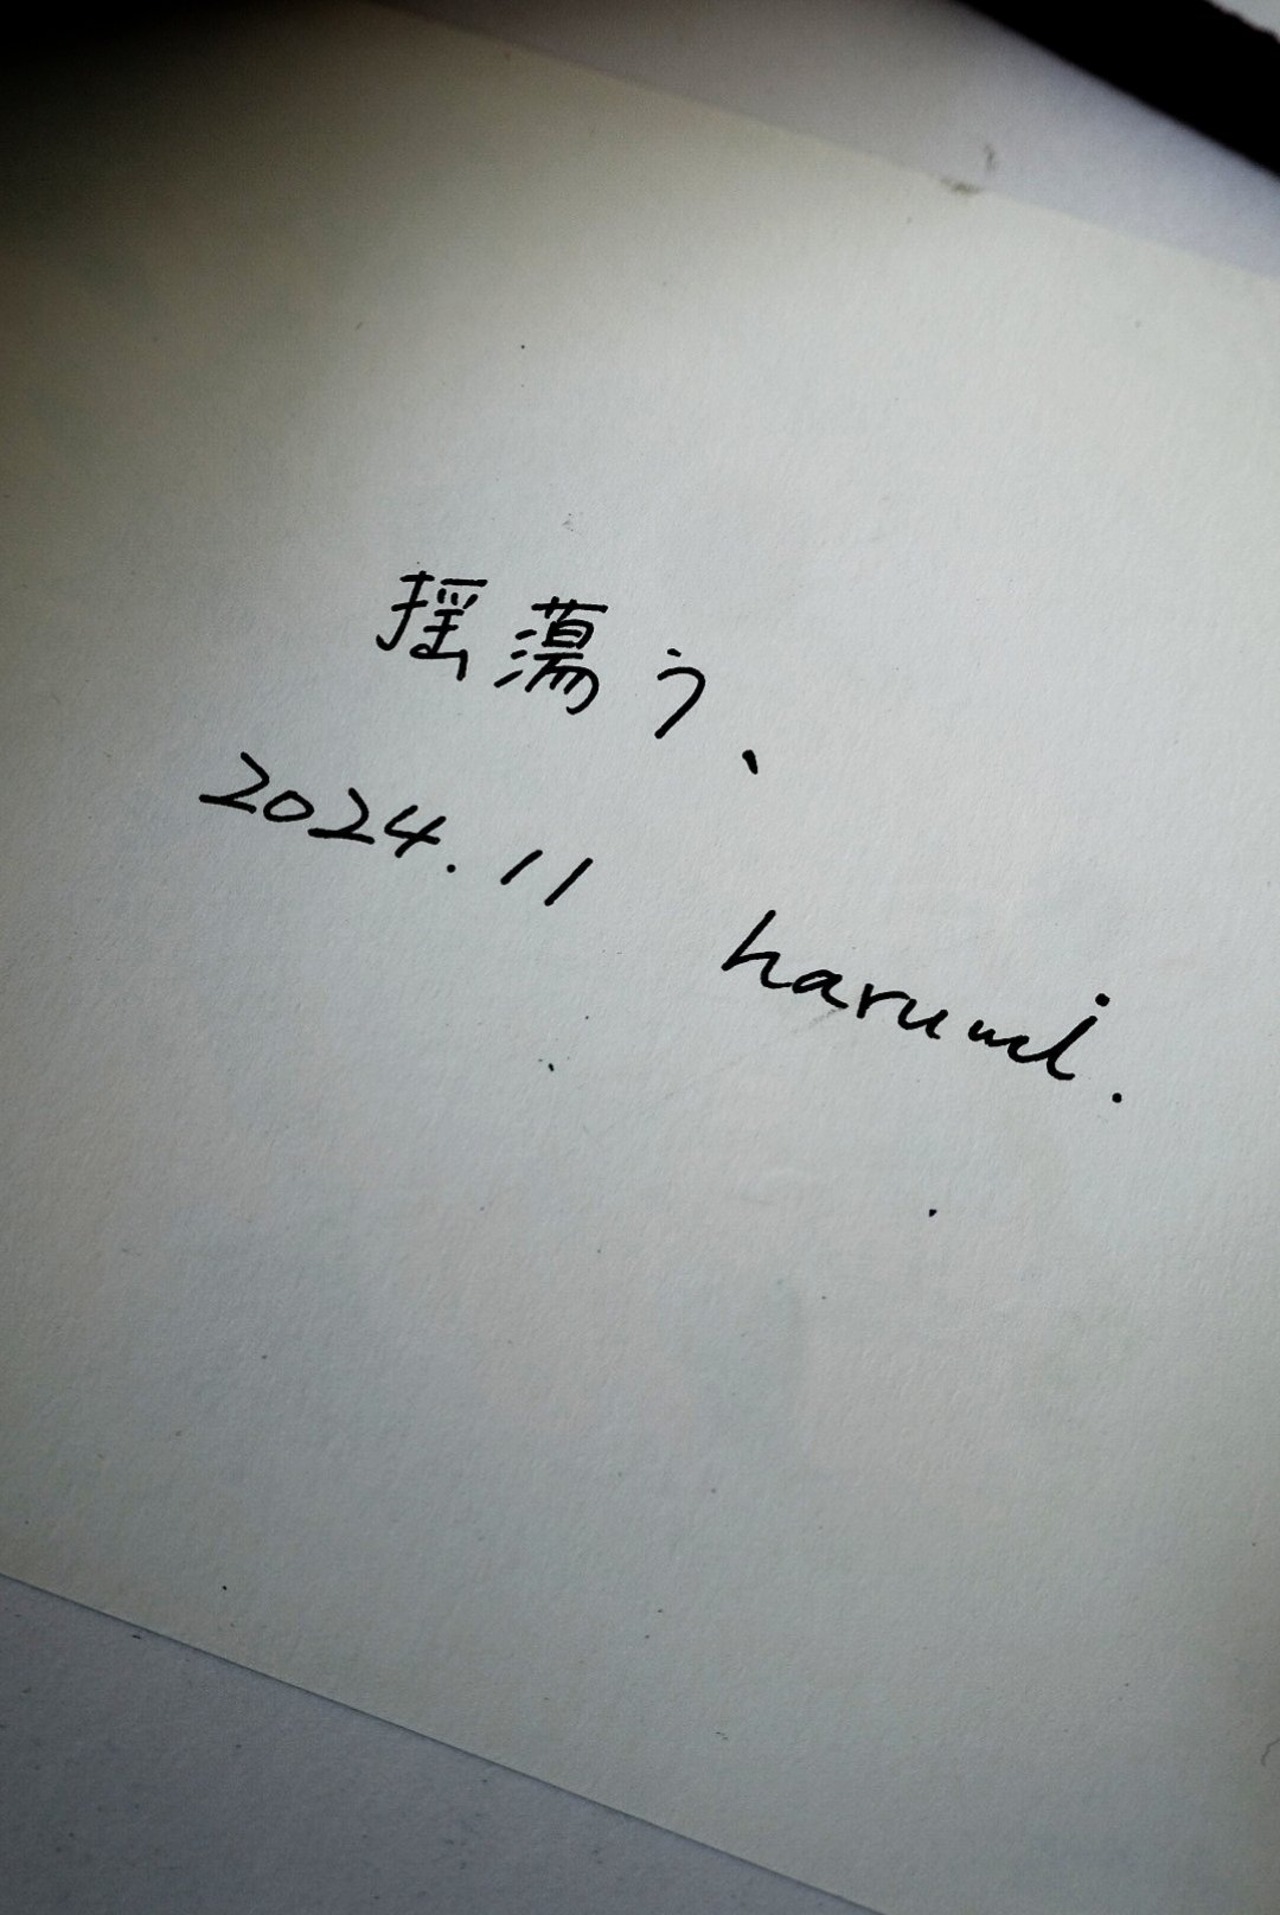 揺蕩う、
2024.11 harumi.